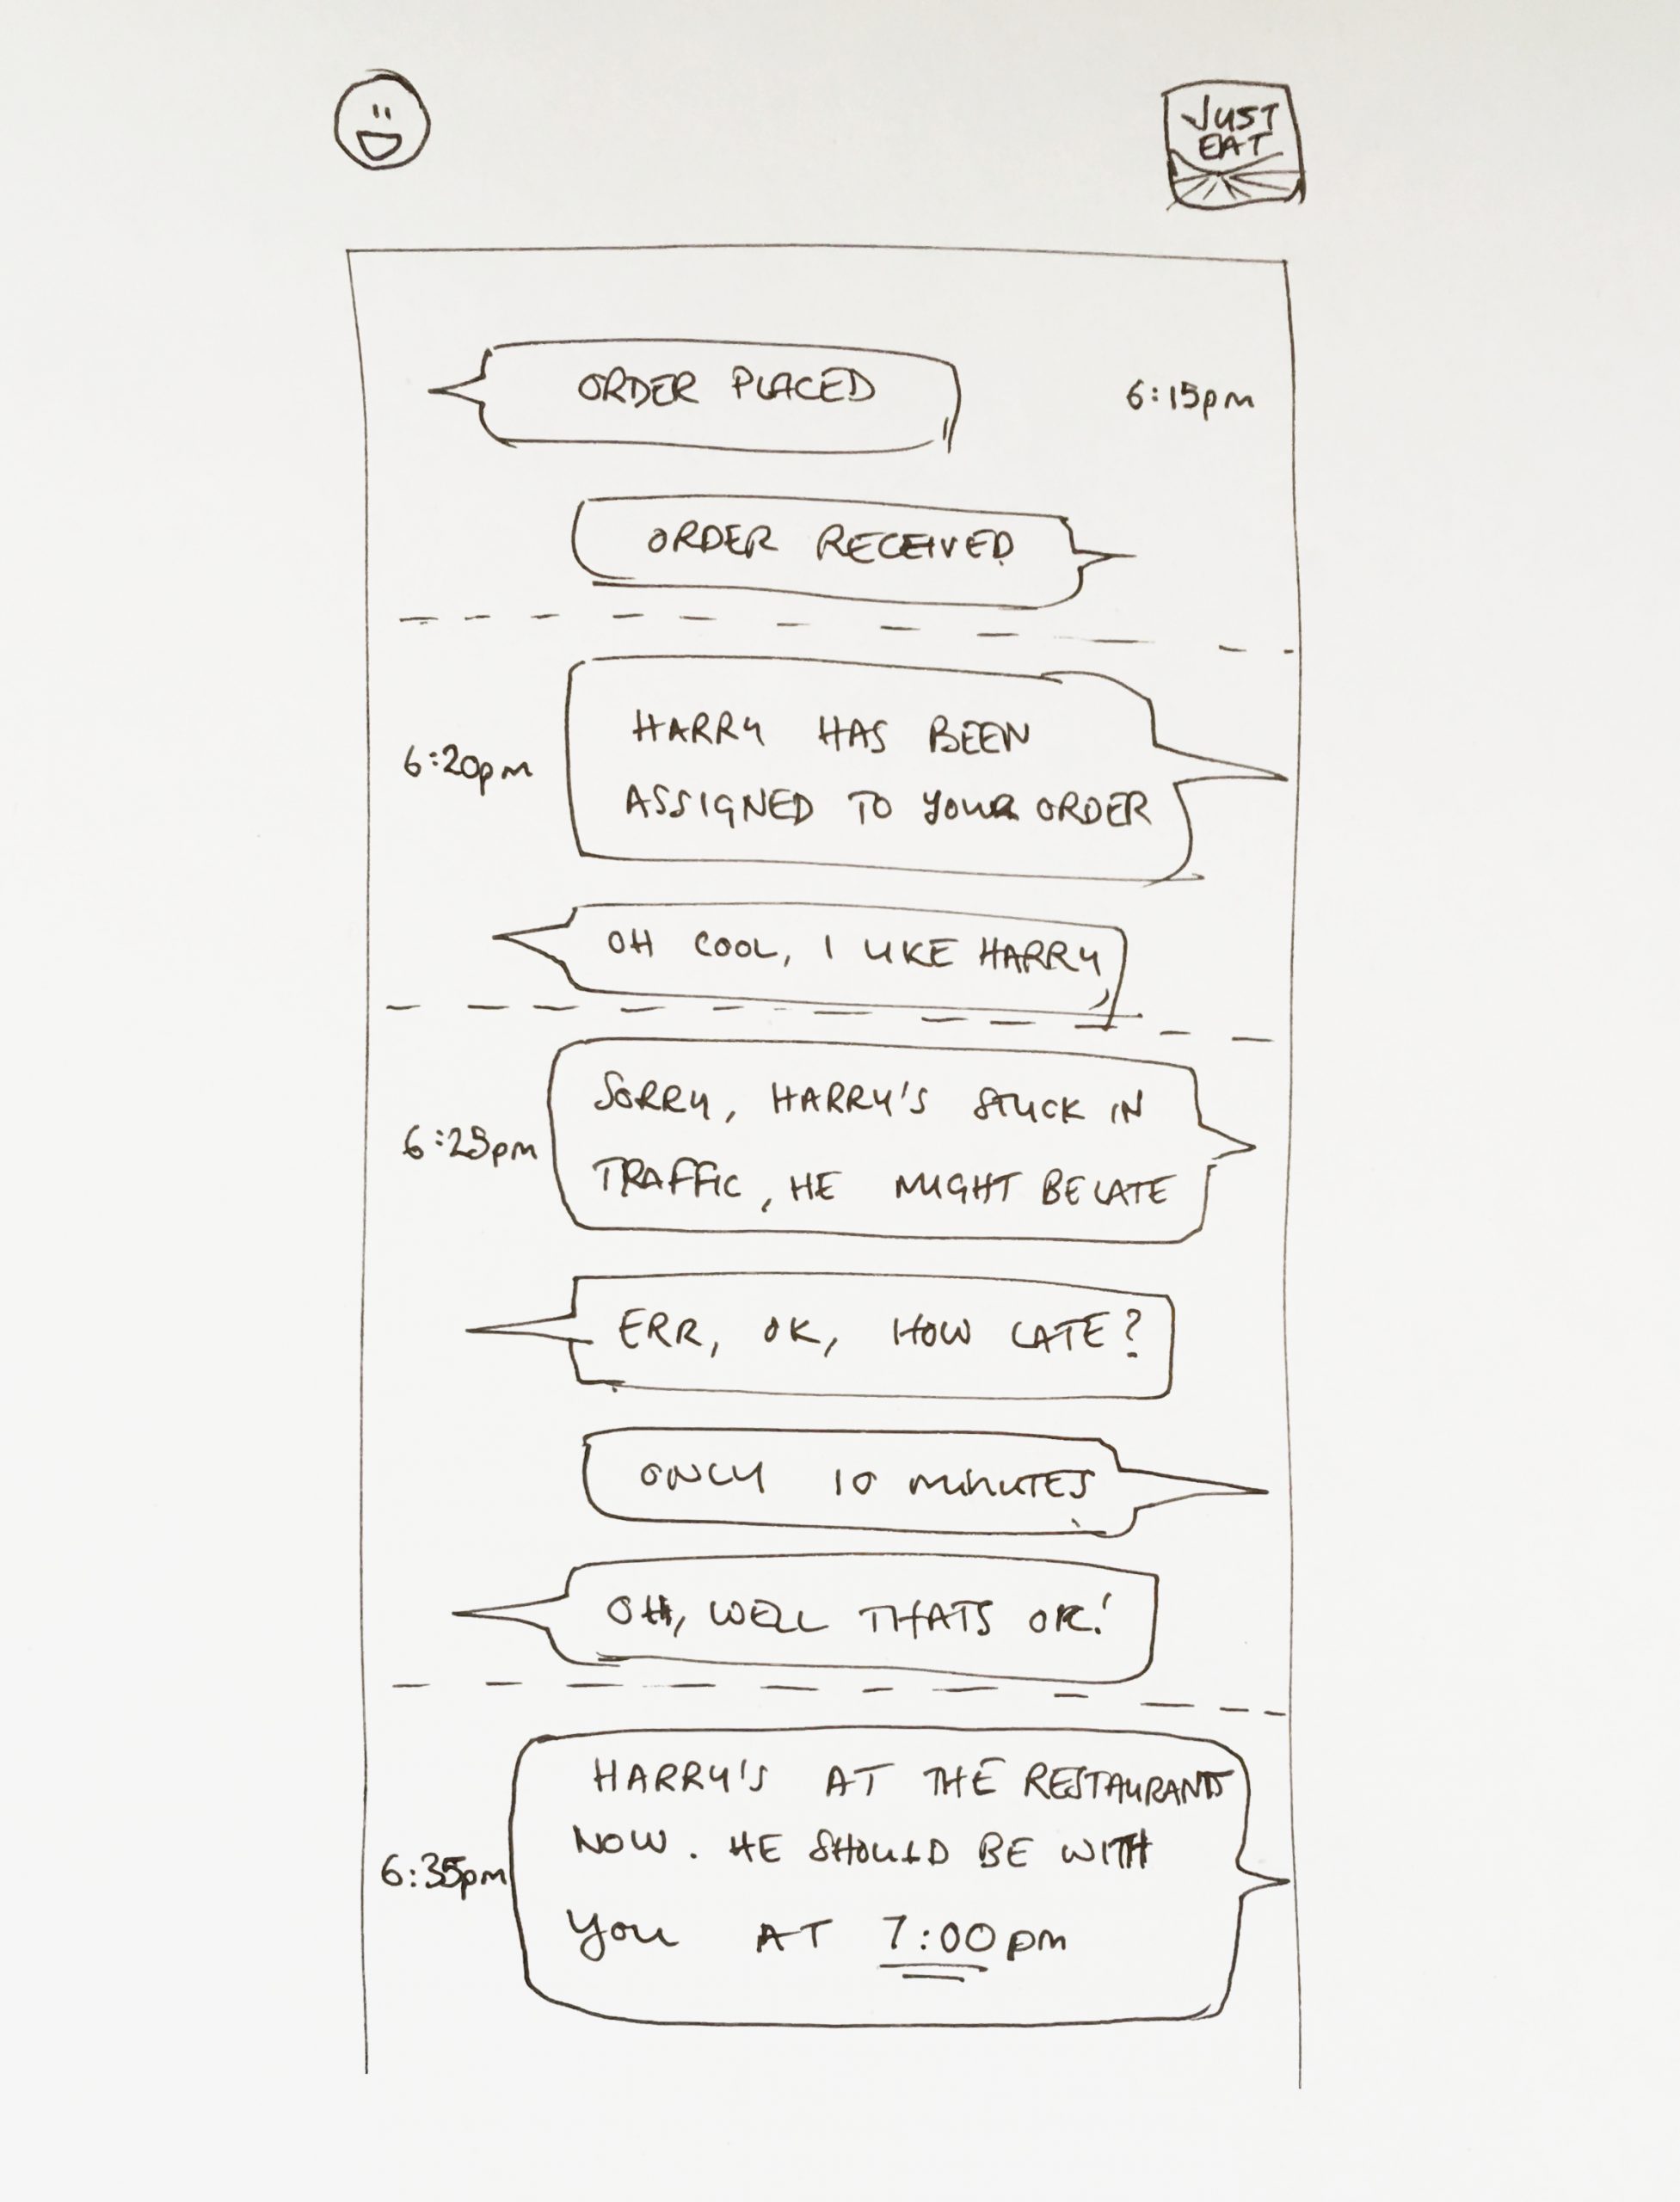 JUST
EAT
ORDER PLACED
6:15pm
ORDER RECEIVED
HARRY HAS BEEN
6:20pm
ASSIGNED TO YOUR ORDER
OH COOL, I LIKE HARRY
SORRY, HARRY'S STUCK IN
6:25pm
TRAFFIC, HE MIGHT BE LATE
ERR, OK, HOW LATE?
ONLY 10 MINUTES
OH, WELL THATS OK!
HARRY'S AT THE RESTAURANT
NOW. HE SHOULD BE WITH
6:35pm
YOU AT 7:00pm